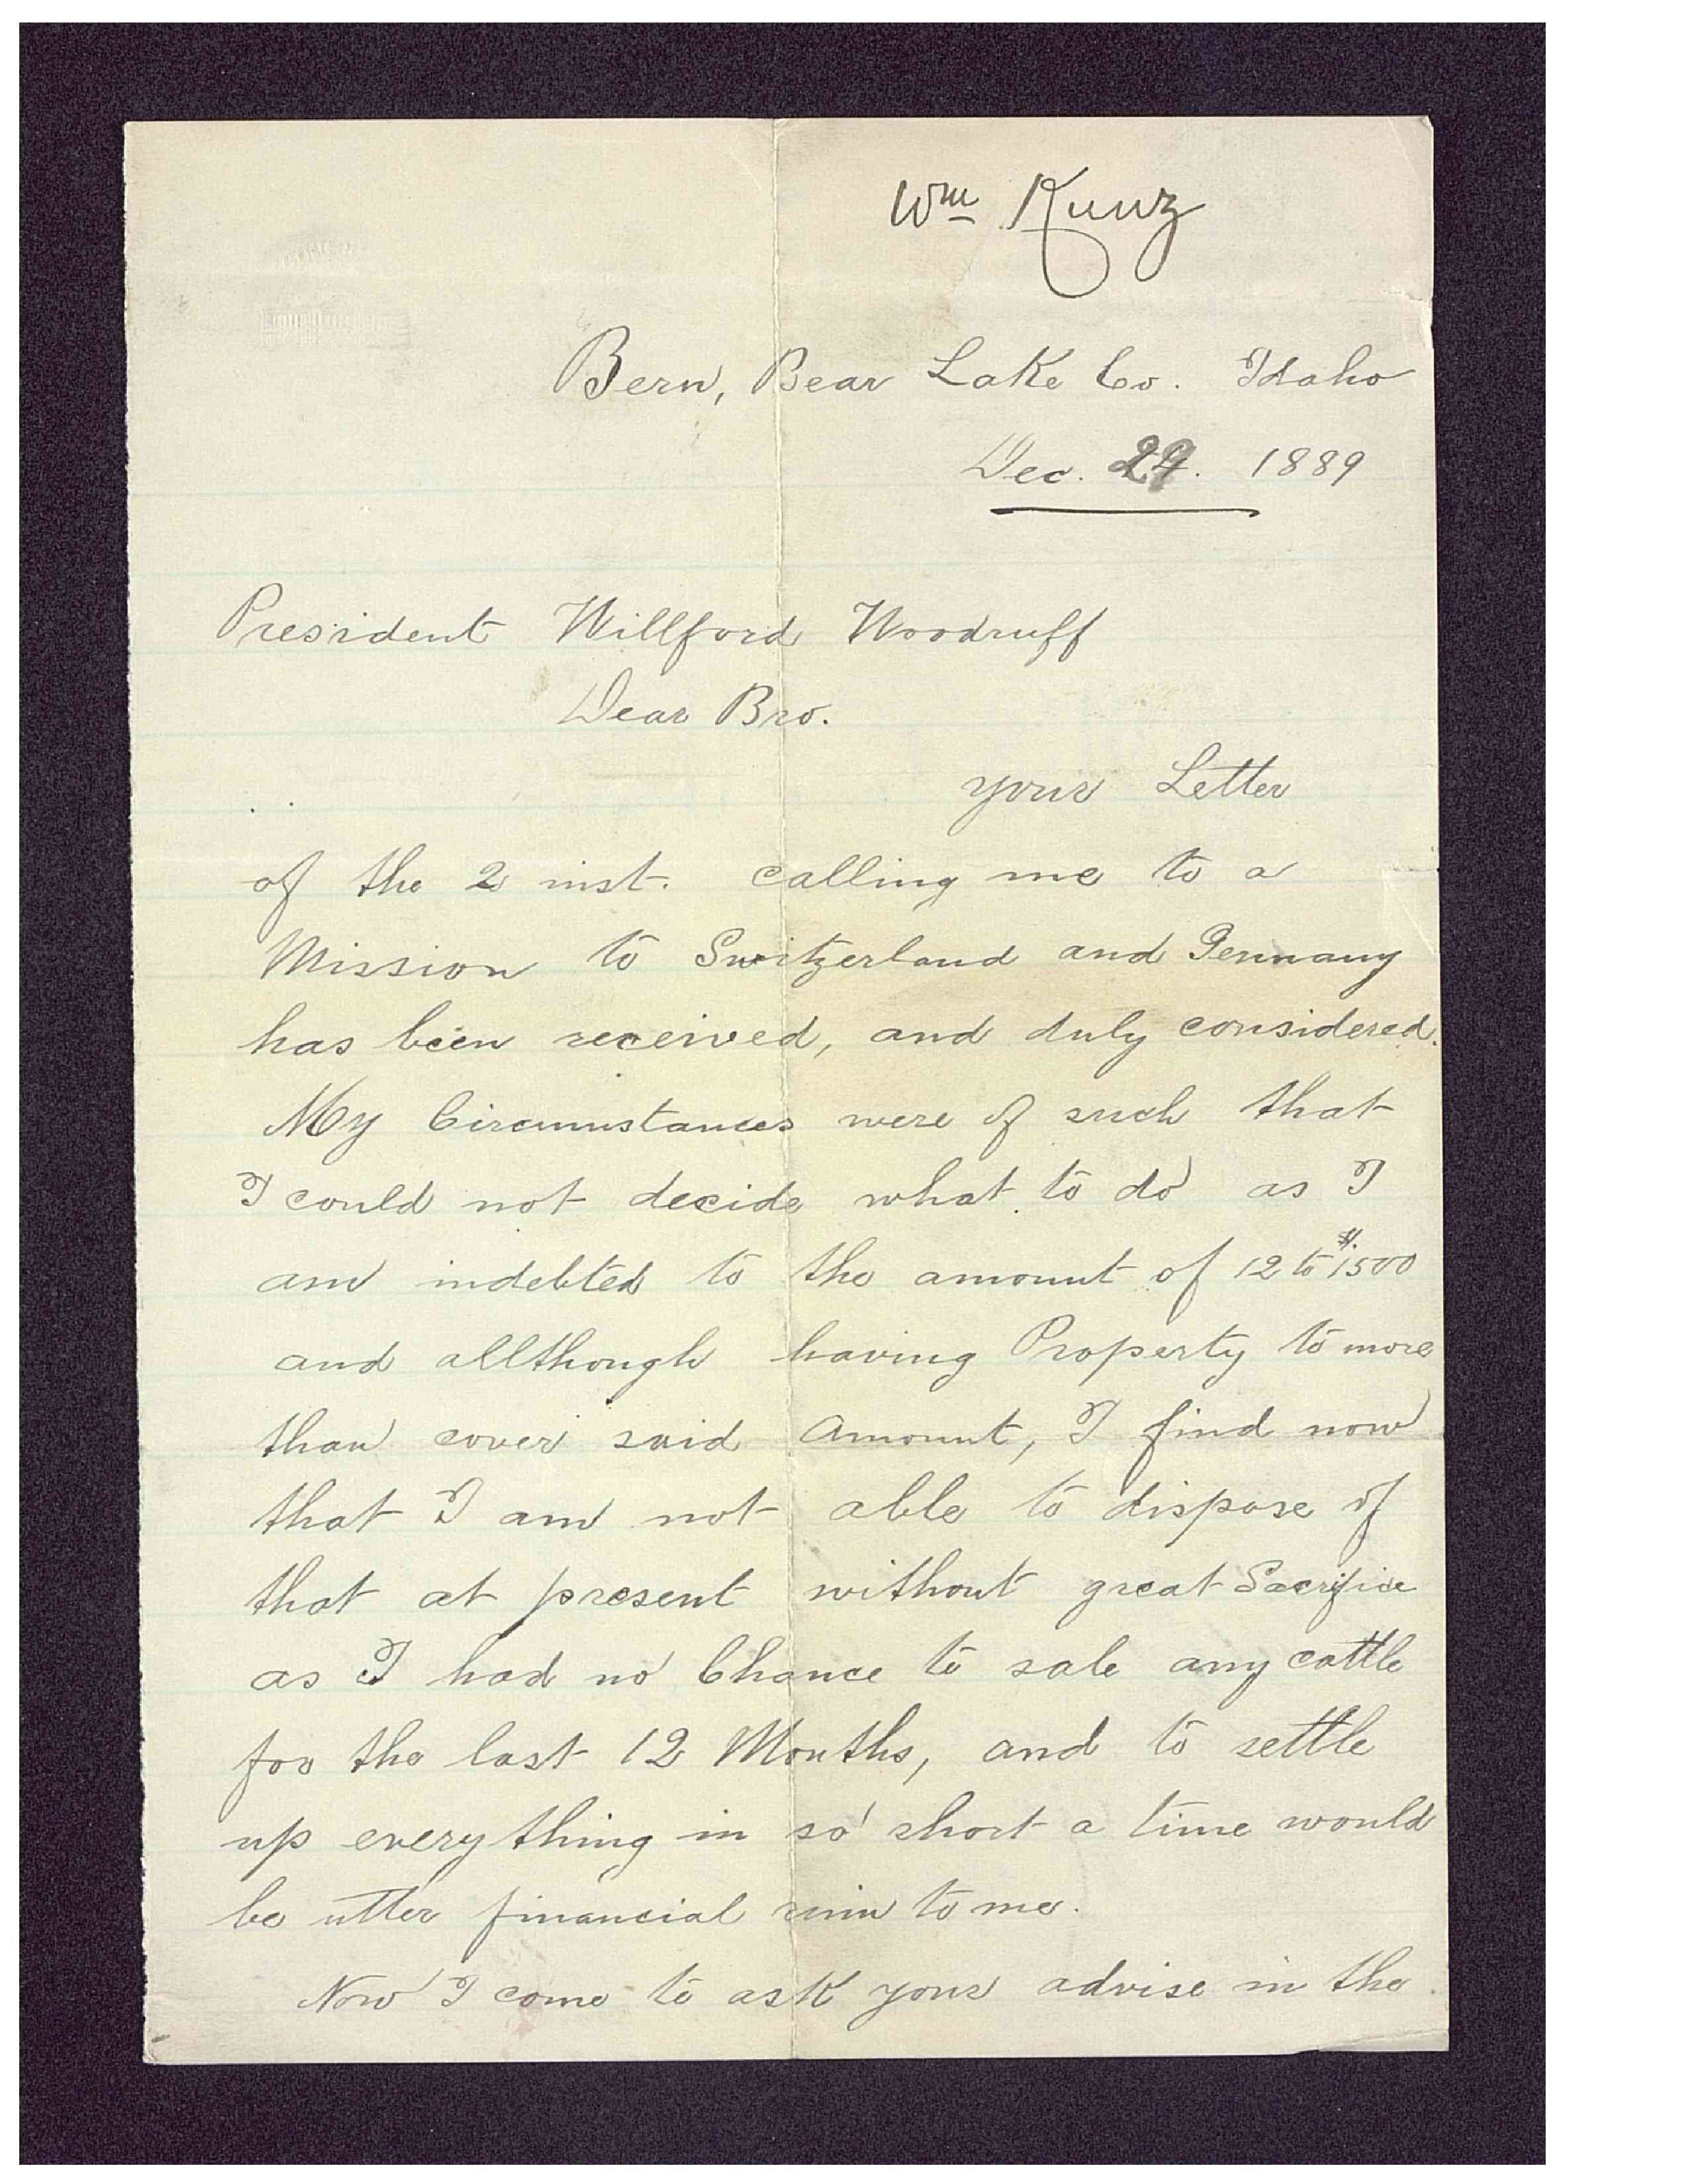 Wm Kunz
Bern, Bear Lake Co. Idaho
Dec. 1889
President Willford Woodruff
Dear Bro.
your Letter
of the 2 inst. calling me to a
Mission to Switzerland and Germany
has been received, and duly considered.
My Circumstances were of such that
I could not decide what to do as I
am indebted to the amount of 12 to $1500
and allthough having Property to more
than cover said amount, I find now
that I am not able to dispose of
that at present without great Sacrifice
as I had no Chance to sale any cattle
for the last 12 Months, and to settle
up everything in so short a time would
be utter financial ruin to me.
Now I come to ask your advise in the